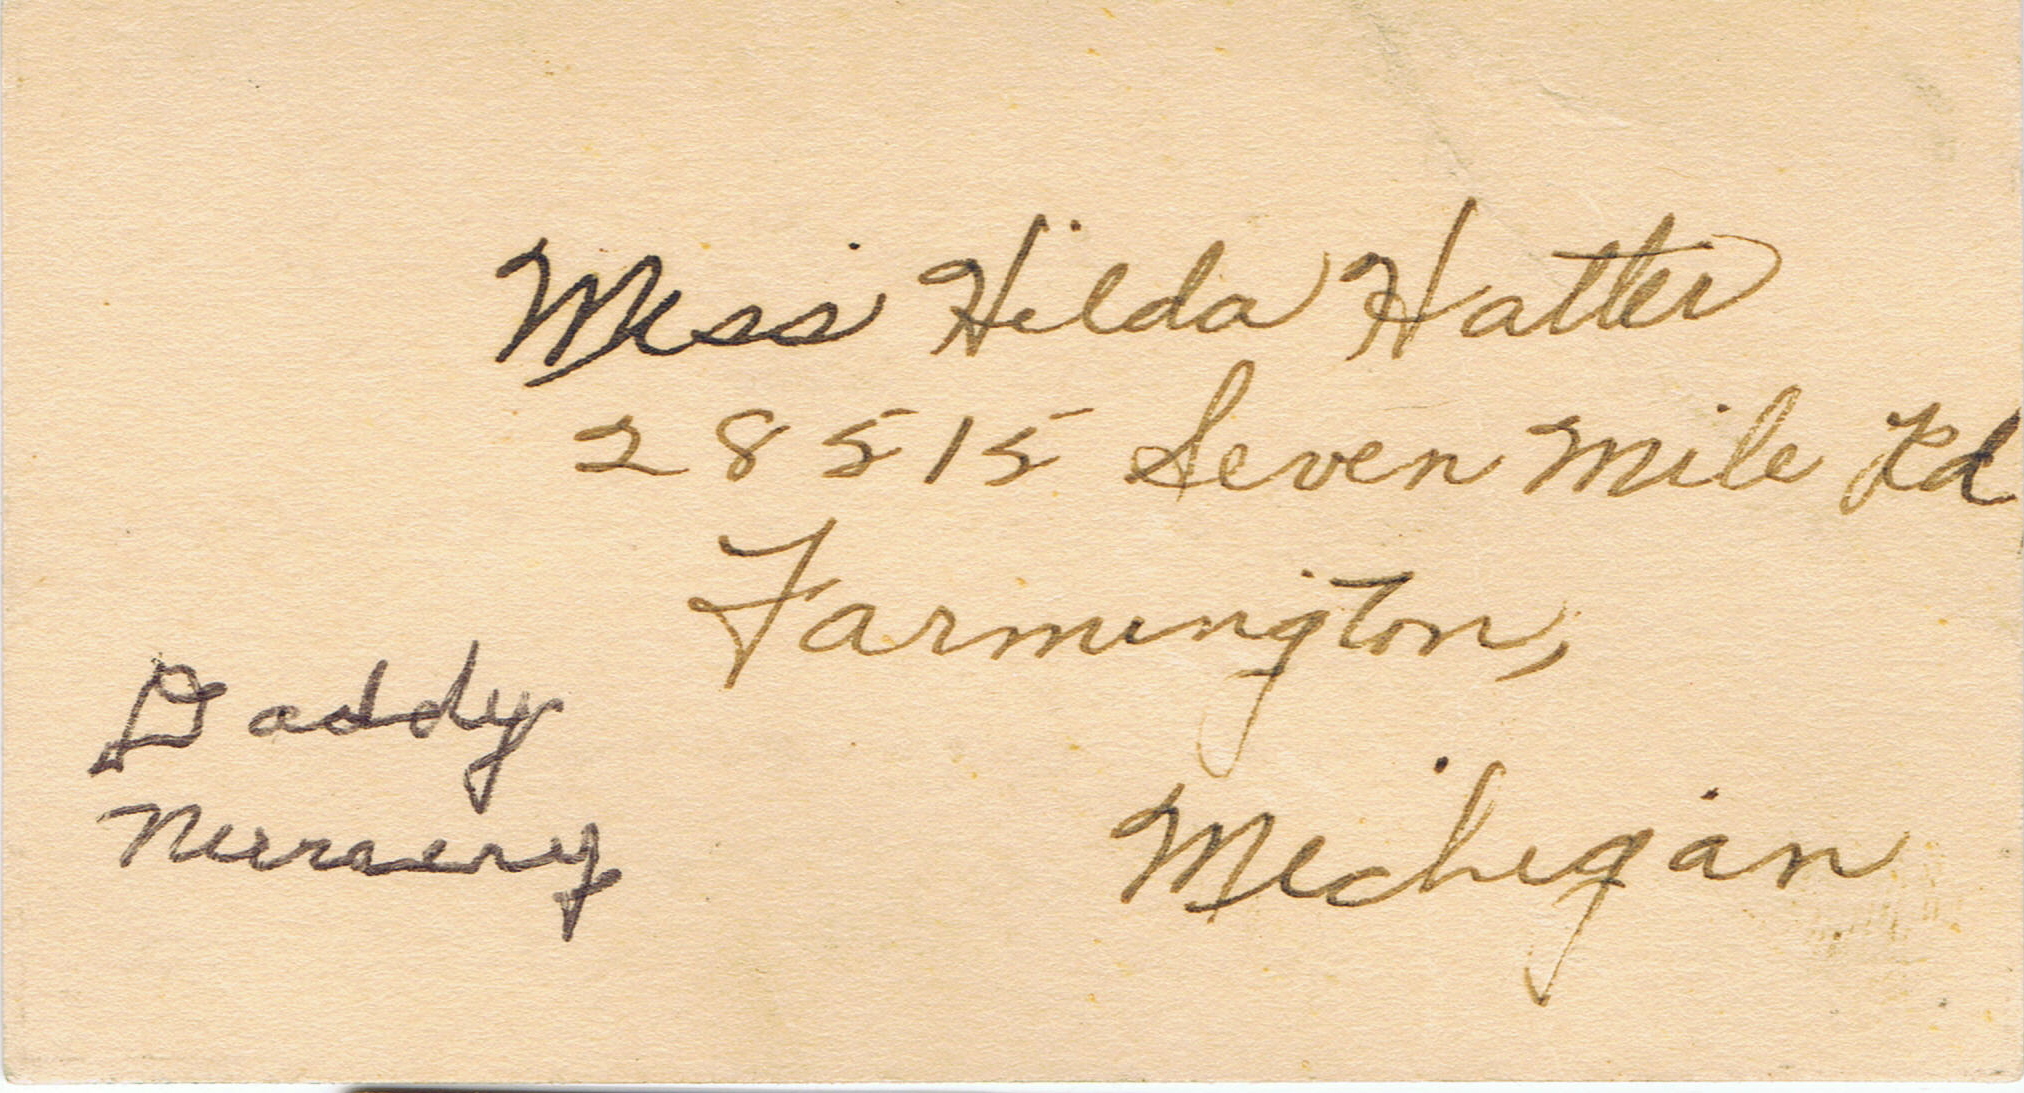 Miss Hilda Hatter
28515 Seven Mile Rd
Farmington,
Michigan
Daddy
Nursery